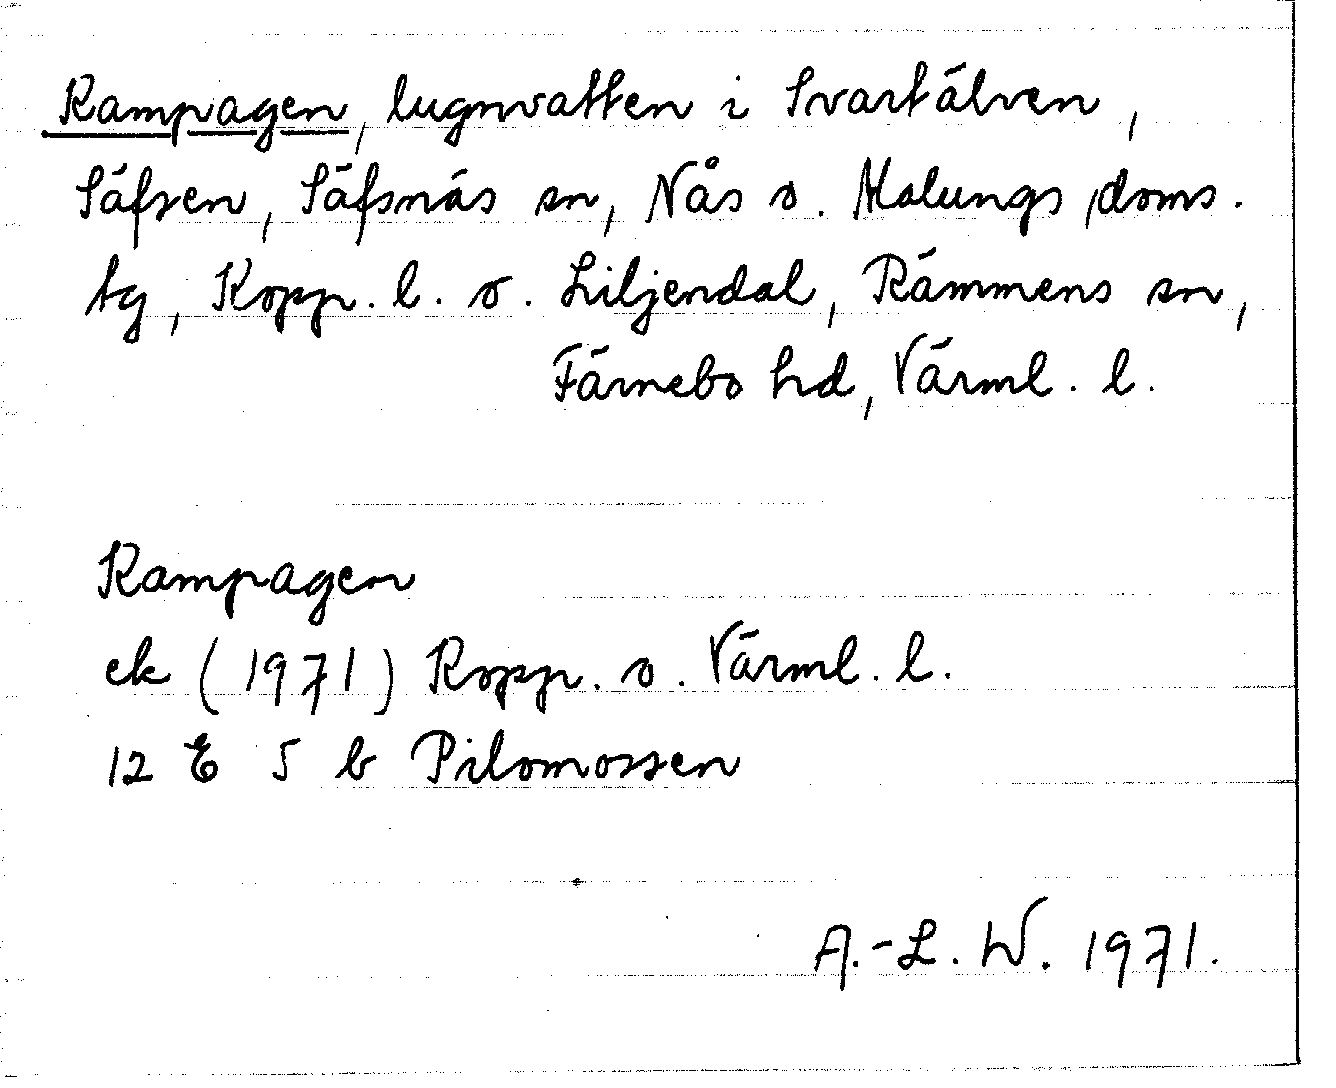 Rampagen, lugnvatten i Svartälven,
Säfsen, Säfsnäs sn, Nås o. Malungs doms.
tg, Kopp. l. o. Liljendal, Rämmens sn,
Färnebo hd, Värml. l.
Rampagen
ek (1971) Kopp. o. Värml. l.
12 E 5 b Pilomossen
A.-L. W. 1971.